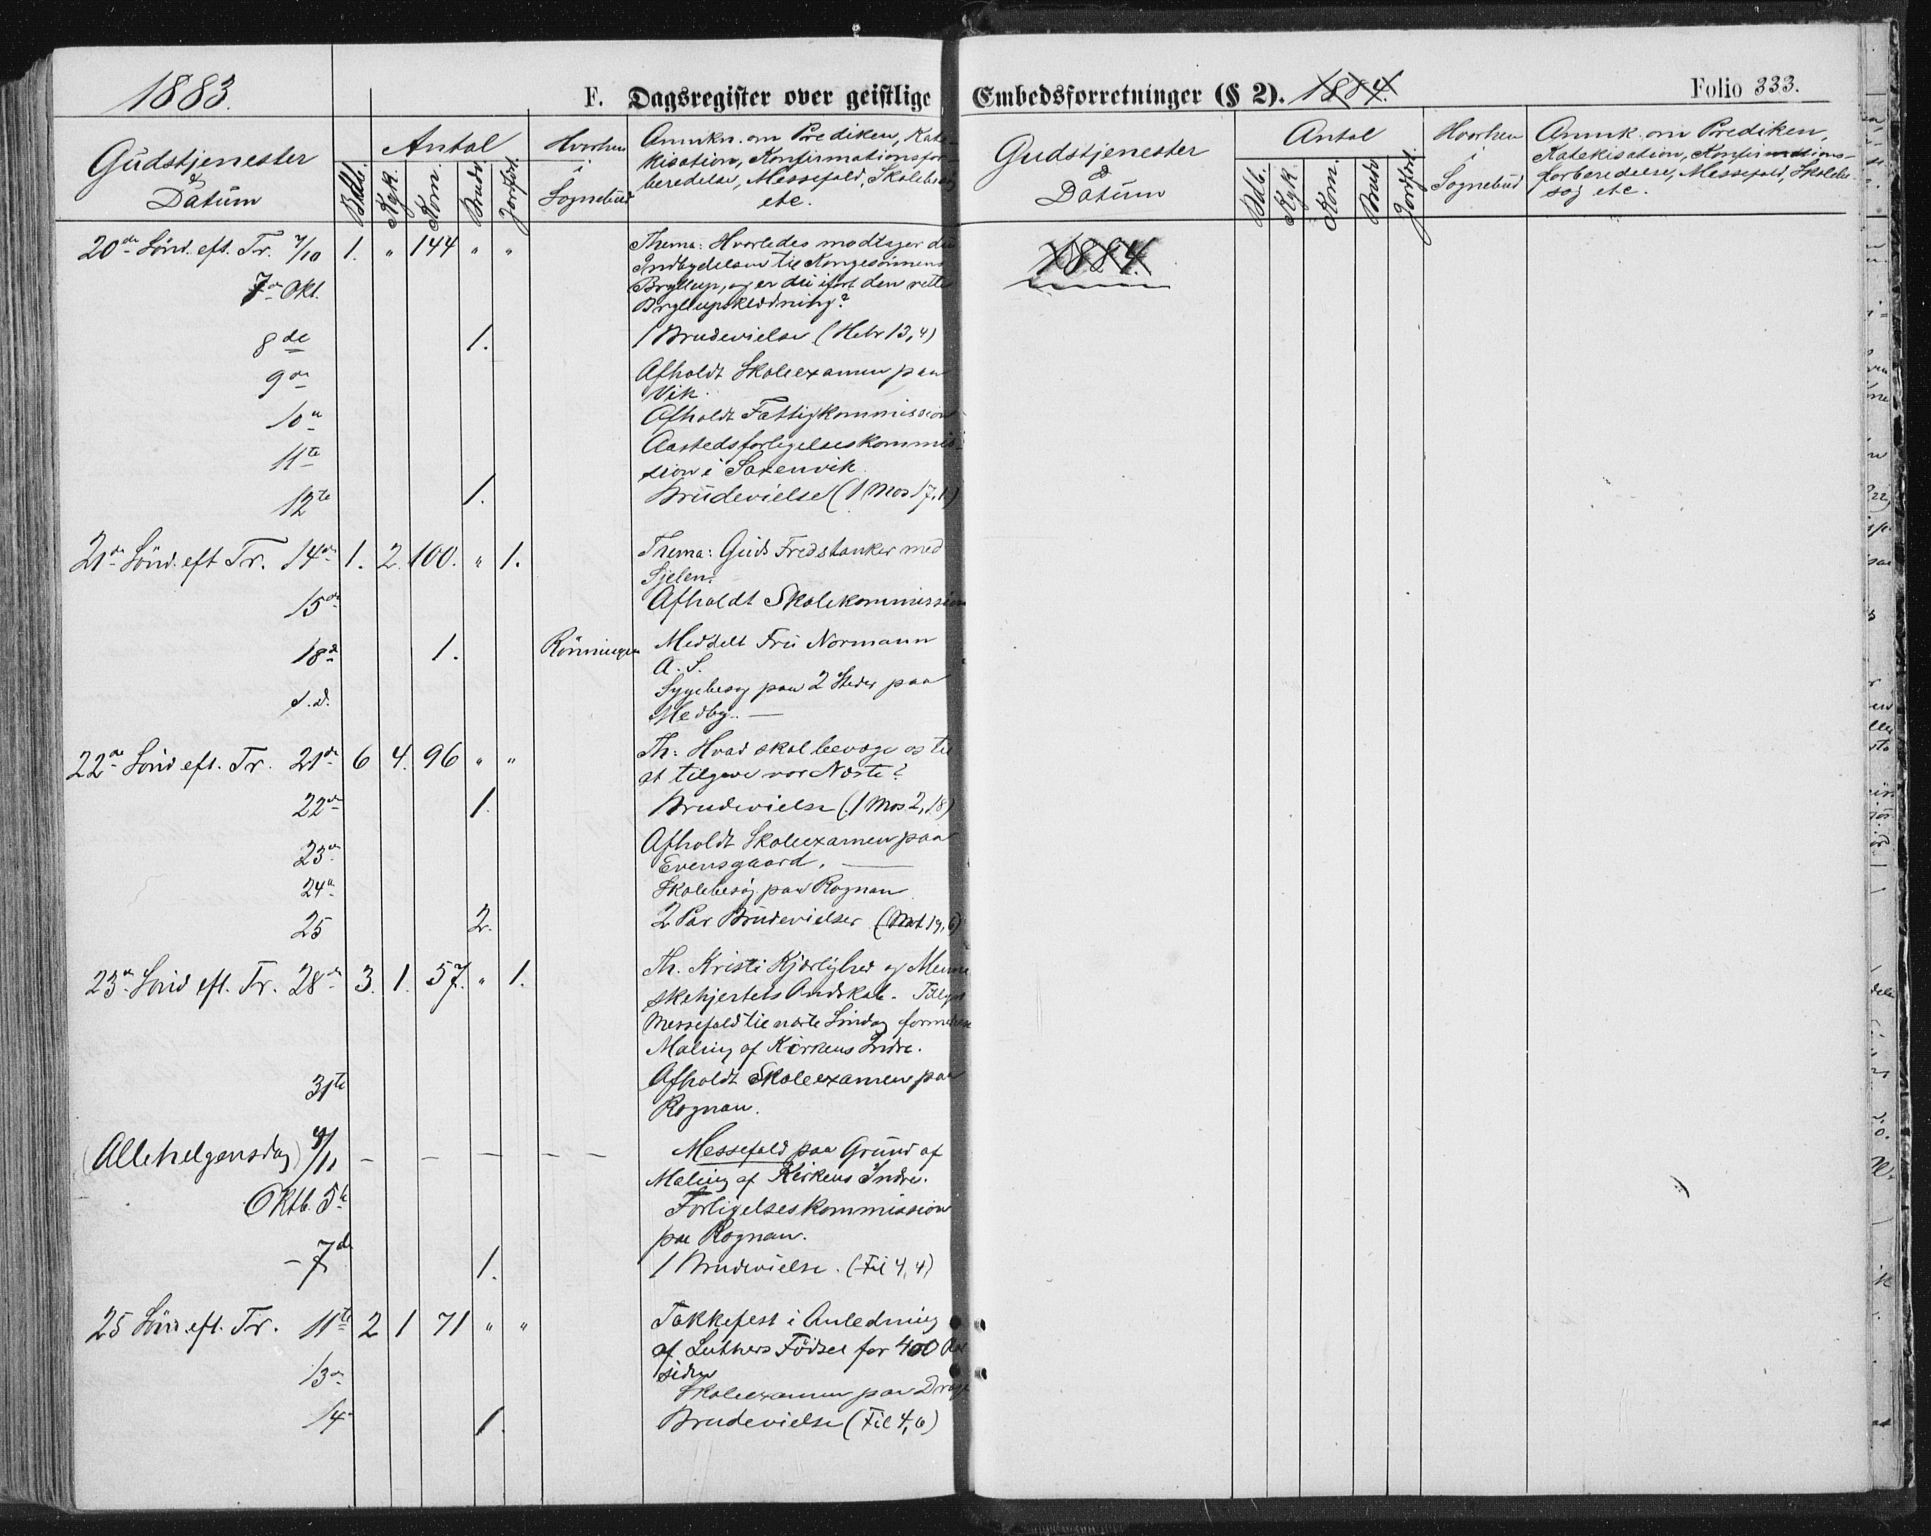 1883.
F. Dagsregister over geistlige
Gudstjenester
&
Datum
Antal
Bldb.
Kgk.
Kom.
Brudv
Jordfæst.
Hvorhen
i
Sognebud
Anmkn. om Prediken, Kate-
kisation, Konfirmationsfor-
beredelse, Messefald, Skolebesøg
etc.
20de Sönd. eft. Tr. 7/10 1. " 144 " "
Thema: Hvorledes modtager du
Indbydelsen til Kongesönnens
7de Okt.
Bryllup, og er du ifört den rette
Bryllupsklædning?
8de 1. 1 Brudevielse (Hebr 13,4)
9de Afholdt Skoleexamen paa
Vik.
10de Afholdt Fattigkommission
11te Aastedsforligelseskommis-
sion i Saxenvik.
12te 1. Brudevielse (1 Mos 17,1)
21de Sönd. eft Tr. 14de 1. 2. 100. " 1. Thema: Guds Fredstanker med
Sjelen.
15de Afholdt Skolekommission
18de 1. Rönningen Meddelt Fru Normann
A. S.
s.d. Sygebesøg paa 2 Steder paa
Medby. —
22de Sönd eft. Tr. 21de 6 4. 96 " " Th: Hvad skal bevæge os til
at tilgive vor Næste?
22de 1. Brudevielse (1 Mos 2,18)
23de Afholdt Skoleexamen paa
Evensgaard. —
24de Skolebesøg paa Rognan
25 2. 2 Par Brudevielser (Mat 19,6)
23de Sönd eft. Tr. 28de 3. 1. 57. " 1. Th. Kristi Kjærlighed og Menne
skehjertets Ondskab. Tillyst
Messefald til næste Söndag formedelst
Maling af Kirkens Indre.
31te Afholdt Skoleexamen paa
Rognan.
(Allehelgensdag) 4/11 – – – – – Messefald paa Grund af
Maling af Kirkens Indre.
Oktb. 5te Forligelseskommission
paa Rognan.
– 7de 1. 1 Brudevielse. (Fil 4,4)
25 Sönd. eft. Tr. 11te 2 1 71 " " Takkefest i Anledning
af Luthers Födsel for 400 Aar
siden
13de Skoleexamen paa
14de 1. Brudevielse (Fil 4,6)
Embedsforretninger (§ 2). 1884.
Folio 333.
Gudstjenester
&
Datum
Antal
Bldb.
Kgk.
Kom.
Brudv
Jordfæst.
Hvorhen
i
Sognebud
Anmk. om Prediken,
Katekisation, Konfirmations-
forberedelse, Messefald, Skolebe-
søg etc.
1884.